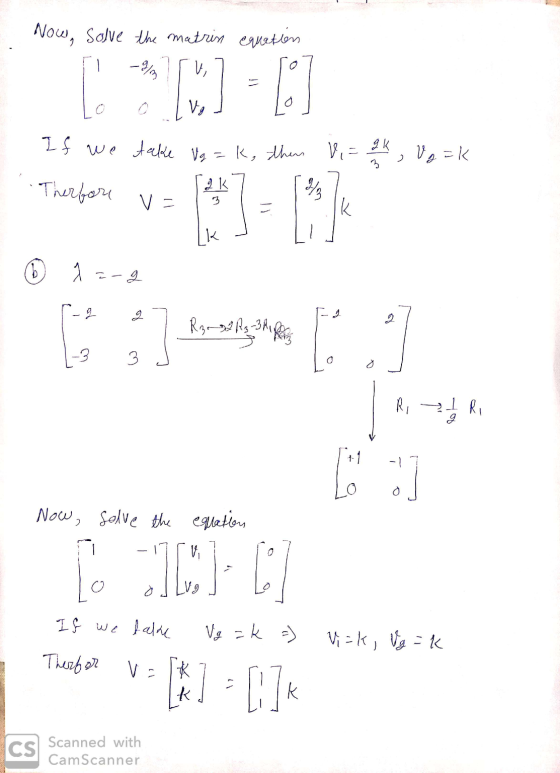 Now, Solve the matrix equation
[1 -2/3; 0 0] [V₁; V₂] = [0; 0]
If we take V₂ = K, then V₁ = 2K/3, V₂ = K
Therfore V = [2K/3; K] = [2/3; 1] K
(b) λ = -2
[-2 2; -3 3] R₃→2R₃-3R₁ [-2 2; 0 0]
R₁ → 1/2 R₁
[+1 -1; 0 0]
Now, Solve the equation
[1 -1; 0 0] [V₁; V₂] = [0; 0]
If we take V₂ = k ⇒ V₁ = k, V₂ = k
Therfor V = [k; k] = [1; 1] k
CS Scanned with
CamScanner